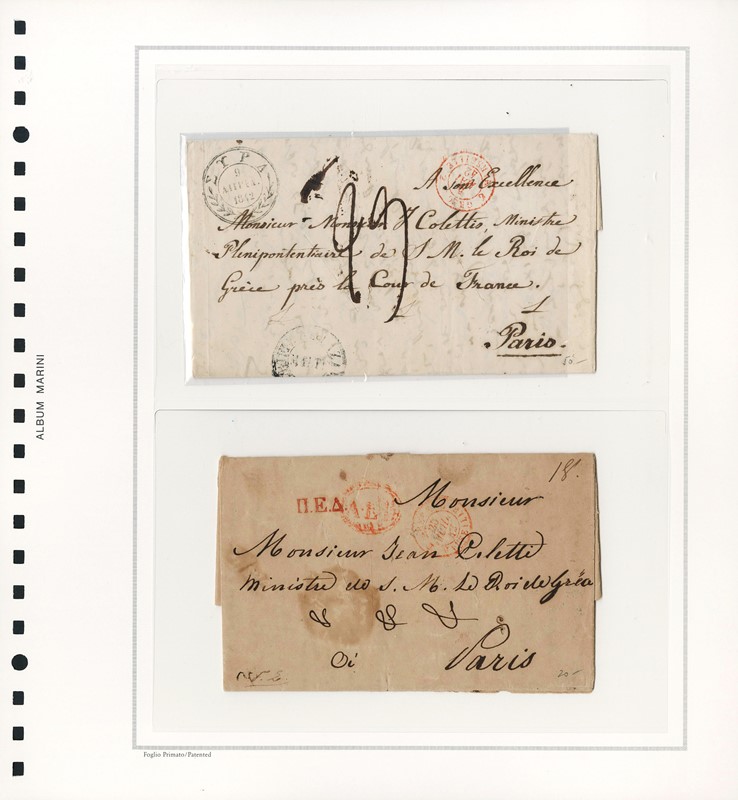 ALBUM MARINI
ΣΥΡΑ
9
ΑΠΡΙΛ.
1842
A Son Excellence
Monsieur Monsieur J Colettis, Ministre
Plenipontentiaire de S. M. le Roi de
Grèce près la Cour de France.
23
Paris.
50-
18.
Π.Ε.Δ.
Monsieur
Monsieur Jean Colette
Ministre de S. M. Le Roi de Grèce
Paris
20-
Foglio Primato/Patented